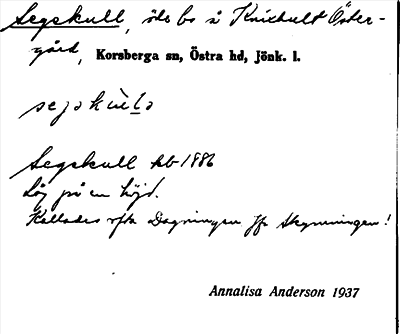 Segskull, öde bs å Knixhult Öster-
gård, Korsberga sn, Östra hd, Jönk. l.
Segskull hb 1886
Låg på en höjd.
Kallades ofta Dagningen jfr Skymningen!
Annalisa Anderson 1937